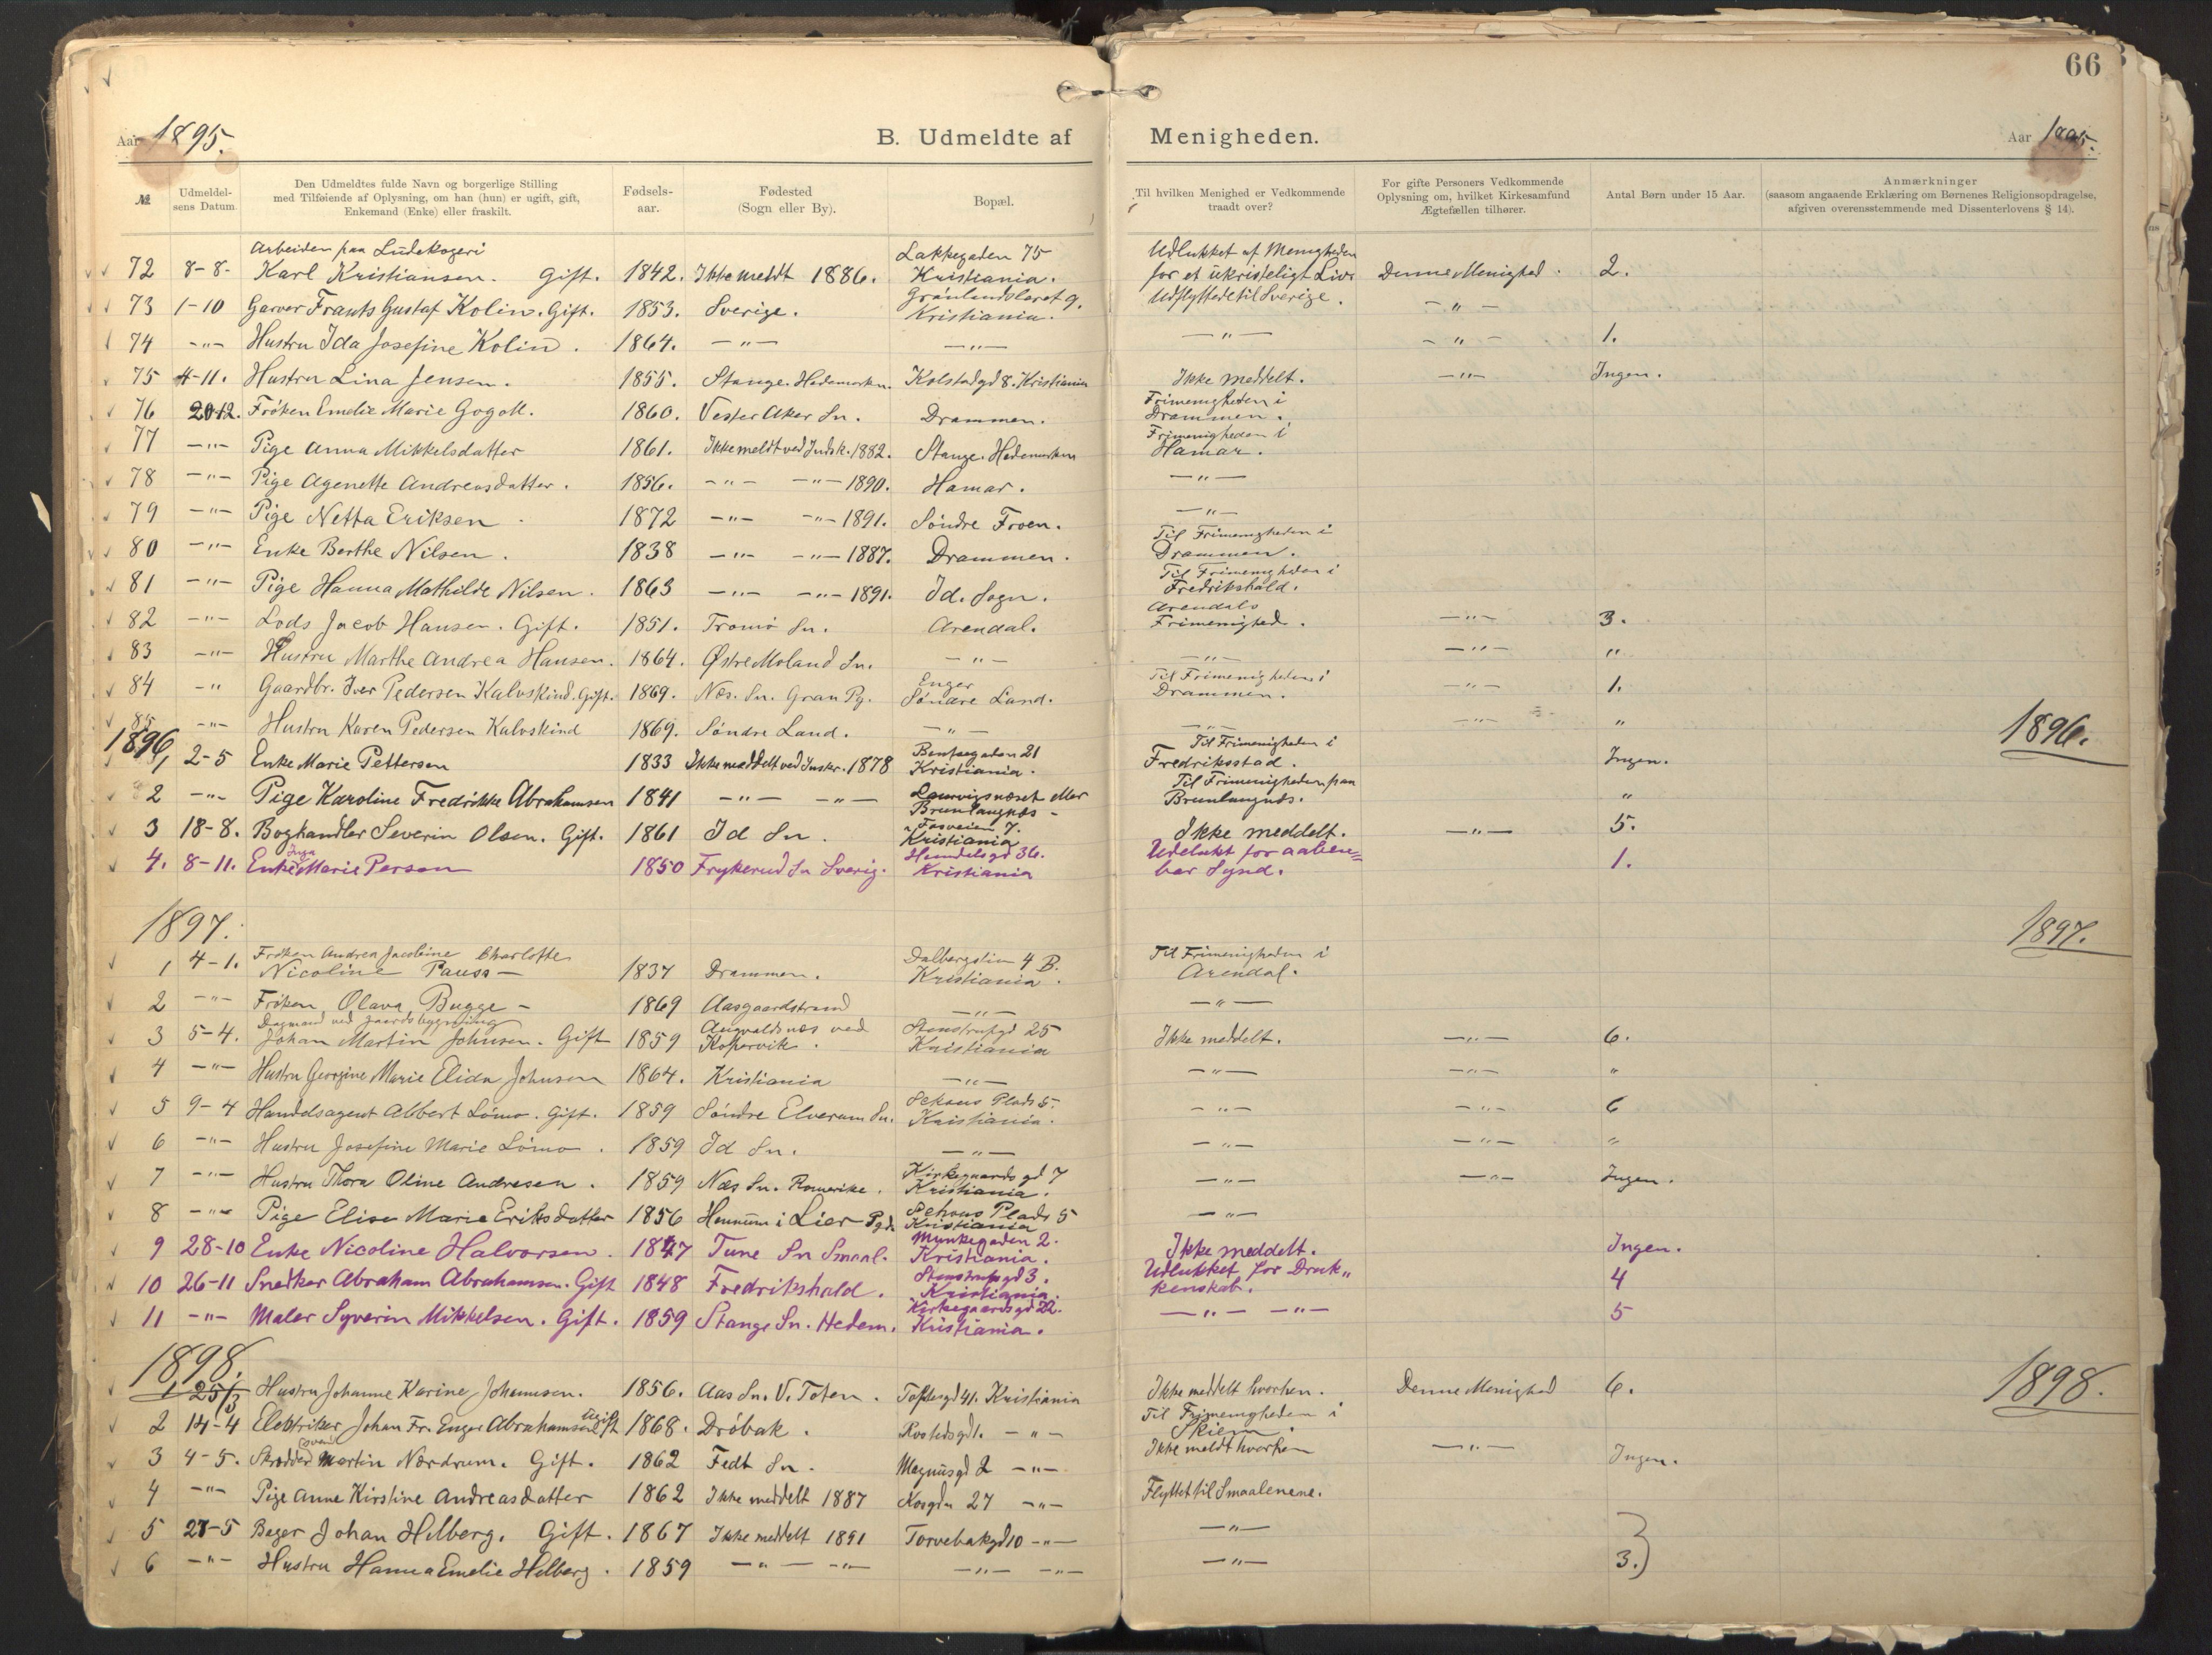 66
Aar 1895.
B. Udmeldte af Menigheden.
Aar 1895.
№
Udmeldelsens Datum.
Den Udmeldtes fulde Navn og borgerlige Stilling med Tilføiende af Oplysning, om han (hun) er ugift, gift, Enkemand (Enke) eller fraskilt.
Fødselsaar.
Fødested (Sogn eller By).
Bopæl.
Til hvilken Menighed er Vedkommende traadt over?
For gifte Personers Vedkommende Oplysning om, hvilket Kirkesamfund Ægtefællen tilhører.
Antal Børn under 15 Aar.
Anmærkninger (saasom angaaende Erklæring om Børnenes Religionsopdragelse, afgiven overensstemmende med Dissenterlovens § 14).
72 8-8- Arbeider paa Ludekogeri Karl Kristiansen. Gift. 1842. Ikke meldt 1886. Lakkegaden 75 Kristiania. Udlukket af Menigheden for et ukristeligt Liv. Denne Menighed. 2.
73 1-10 Garver Frants Gustaf Kolin. Gift. 1853. Sverige. Grønlandsleret 9. Kristiania. Udflyttede til Sverige. -"-
74 -"- Hustru Ida Josefine Kolin. 1864. -"- -"- -"- -"- 1.
75 4-11. Hustru Lina Jensen. 1855. Stange. Hedemarken. Kolstadgd 8. Kristiania Ikke meddelt. -"- Ingen.
76 20-12. Frøken Emelie Marie Gogoll. 1860. Vester Aker Sn. Drammen. Frimenigheden i Drammen.
77 -"- Pige Anna Mikkelsdatter 1861. Ikke meldt ved Indsk. 1882. Stange. Hedemarken Frimenigheden i Hamar.
78 -"- Pige Agenette Andreasdatter. 1856. -"- -"- 1890. Hamar. -"-
79 -"- Pige Netta Eriksen. 1872 -"- -"- 1891. Søndre Froen. -"-
80 -"- Enke Berthe Nilsen. 1838 -"- -"- 1887. Drammen. Til Frimenigheden i Drammen.
81 -"- Pige Hanna Mathilde Nilsen. 1863 -"- -"- 1891. Id. Sogn. Til Frimenigheden i Fredrikshald.
82 -"- Lods Jacob Hansen. Gift. 1851. Tromø Sn. Arendal. Arendals Frimenighed. -"- 3.
83 -"- Hustru Marthe Andrea Hansen. 1864. Østre Moland Sn. -"- -"- -"- "
84 -" Gaardbr. Iver Pedersen Kalvskind. Gift. 1869. Næs. Sn. Gran Pg. Enger Søndre Land. Til Frimenigheden i Drammen. -"- 1.
85 -"- Hustru Karen Pedersen Kalvskind 1869. Søndre Land. -"- -"- -"- "
1896. 1896.
1 2-5 Enke Marie Pettersen 1833 Ikke meddelt ved Inskr. 1878 Bentsegaden 21 Kristiania. Til Frimenigheden i Fredriksstad. Ingen.
2 -"- Pige Karoline Fredrikke Abrahamsen 1841 -"- -"- Brunlangnæs - Til Frimenigheden paa Brunlangnæs. "
3 18-8. Boghandler Severin Olsen. Gift. 1861 Id Sn. Fosveien 7. Kristiania Ikke meddelt. -"- 5.
4. 8-11. Enke Inga Marie Person 1850 Frykerud Sn Sverig. Kristiania Udelukt for aabenbar Synd. 1.
1897. 1897.
1 4-1. Frøken Andrea Jacobine Charlotte Nicoline Pauss - 1837 Drammen. Dalbergstien 4 B. Kristiania. Til Frimenigheden i Arendal.
2 -"- Frøken Olava Bugge - 1869 Aasgaardstrand -"- -"-
3 5-4. Dagmand ved gaardsbygning Johan Martin Johnsen. Gift 1859 Augvaldsnæs ved Kopervik. Stenstrupgd 25 Kristiania Ikke meddelt. -"- 6.
4 -"- Hustru Georgine Marie Elida Johnsen 1864. Kristiania -"- -"- -"- "
5 9-4 Handelsagent Albert Lømo. Gift. 1859 Søndre Elverum Sn. Schous Plads 5. Kristiania. -"- -"- 6
6 -"- Hustru Josefine Marie Lømo. 1859 Id Sn. -"- -"- -"- "
7 -"- Hustru Thora Oline Andresen. 1859 Næs Sn. Romerike. Kirkegaardsgd 7 Kristiania. -"- -"- Ingen.
8 -"- Pige Elise Marie Eriksdatter 1856 Hennum i Lier Pgd. Schous Plads 5 Kristiania -"-
9 28-10 Enke Nicoline Halvorsen. 1847 Tune Sn Smaal. Munkegaden 2. Kristiania. Ikke meddelt. Ingen.
10 26-11 Snedker Abraham Abrahamsen. Gift 1848 Fredrikshald. Stenstrupsgd 3. Kristiania. Udlukket for Drukkenskab. 4
11 -"- Maler Syverin Mikkelsen. Gift. 1859 Stange Sn. Hedem. Kirkegaardsgd 22. Kristiania. -"- -"- 5
1898. 1898.
1 25/3 Hustru Johanne Karine Johannsen. 1856. Aas Sn. V. Toten. Toftesgd 41. Kristiania Ikke meddelt hvorhen. Denne Menighed 6.
2 14-4 Elektriker Johan Fr. Enger Abrahamsen Ugift 1868. Drøbak. Rostedsgd 1. -"- Til Frimenigheden i Skien.
3 4-5. Skrædder Martin Nordrum. Gift. 1862 Fedt Sn. Magnusgd 2 -"- Ikke meldt hvorhen -"- Ingen.
4 -"- Pige Anne Kirstine Andreasdatter 1862 Ikke meddelt 1887 27 -"- Flyttet til Smaalenene.
5 27-5 Bager Johan Hilberg. Gift. 1867 Ikke meddelt 1891 Torvebakgd 10 -"- -"-
6 -"- Hustru Hanna Emelie Hilberg. 1859 -"- -"- -"- -"- -"- 3.